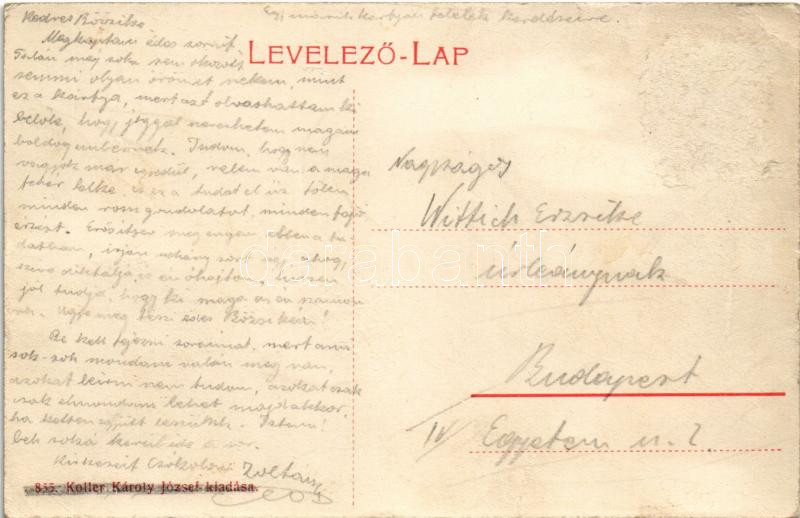 Egy másik kártyán felelek kérdéseire.
Kedves Bözsike
Megkaptam édes sorait.
LEVELEZŐ-LAP
Talán még soha sem okozott
semmi olyan örömet nekem, mint
ez a kártya, mert azt olvashattam ki
belőle, hogy joggal nevezhetem magam
boldog embernek. Tudom, hogy nem
vagyok már egyedül, velem van a maga
fehér lelke, és ez a tudat elűz tőlem
minden rossz gondolatot, minden fájó
érzést. Erősítsen meg engem ebben a tu-
datban, írjon néhány sort úgy, ahogy
szíve diktálja és én óhajtom, hiszen
jól tudja, hogy ki maga az én számom-
ra. Ugye meg teszi édes Bözsikém!
Be kell fejezni soraimat, mert ami
sok-sok mondani valóm még van,
azokat leírni nem tudom, azokat csak
csak elmondani lehet majd akkor,
ha ketten együtt leszünk. Istenem!
be soká kerül ide a sor.
Kezeit Csókolom Zoltán
Nagyságos
Wittich Erzsike
úrleánynak
Budapest
IV Egyetem u. 2.
835. Koller Károly József kiadása.
darabanth